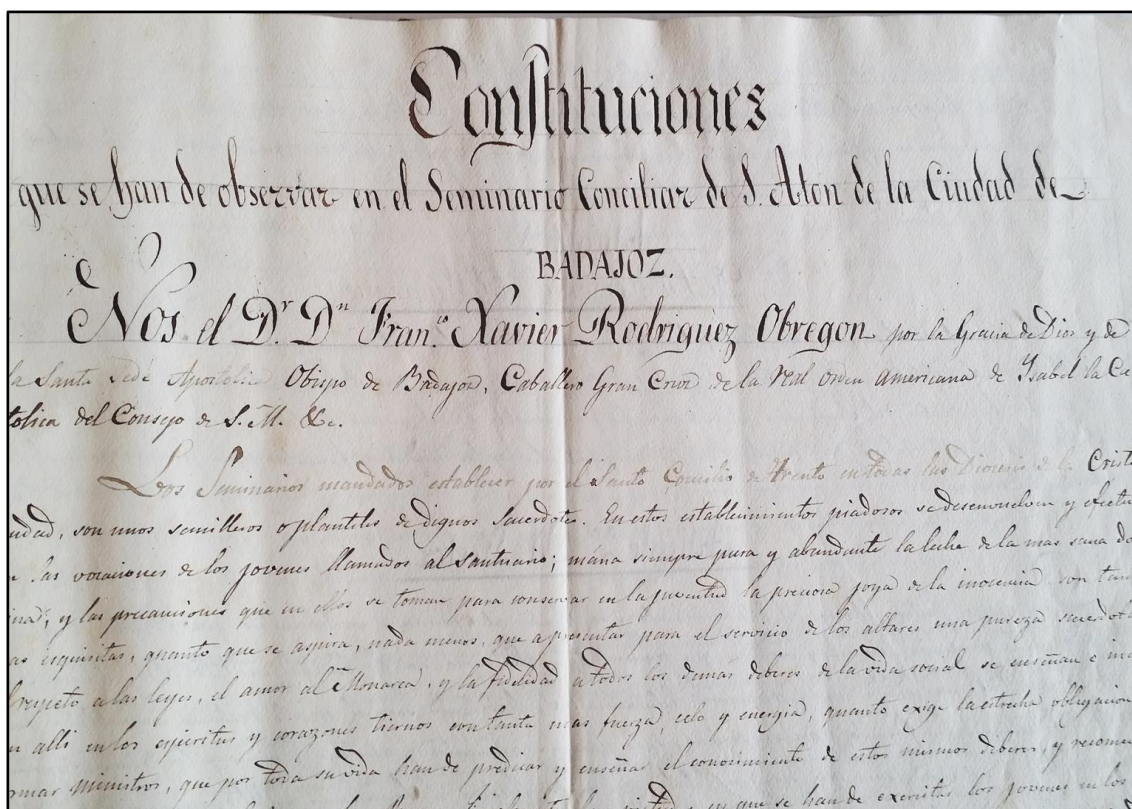 Constituciones
que se han de observar en el Seminario Conciliar de S. Aton de la Ciudad de
BADAJOZ.
Nos el Dr. Dn Fran.co Xavier Rodriguez Obregon por la Gracia de Dios y de
la Santa Sede Apostolica Obispo de Badajoz, Caballero Gran Cruz de la Real orden americana de Ysabel la Ca
tolica del Consejo de S. M. &c.
Los Seminarios mandados establecer por el Santo Concilio de Trento en todas las Diocesis de la Cristi
andad, son unos semilleros o planteles de dignos Sacerdotes. En estos establecimientos piadosos se desenvuelven y efectu
n las vocaciones de los jovenes llamados al santuario; mana siempre pura y abundante la leche de la mas sana do
rina; y las precauciones que en ellos se toman para conservar en la juventud la preciosa joya de la inocencia son tan
as esquisitas, quanto que se aspira, nada menos, que a presentar para el servicio de los altares una pureza sacerdotal
l respeto a las leyes, el amor al Monarca, y la fidelidad a todos los demas deberes de la vida social se enseñan e in
n alli en los espiritus y corazones tiernos con tanta mas fuerza, celo y energia, quanto exige la estrecha obligacion
ormar ministros, que por toda su vida han de predicar y enseñar el conocimiento de estos mismos deberes, y recome
en que se han de exercitar los jovenes en los